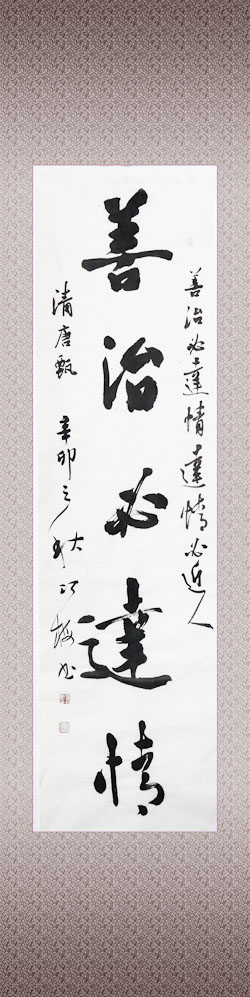 善治必達情達情必近人
善治必達情
清唐甄 辛卯之秋